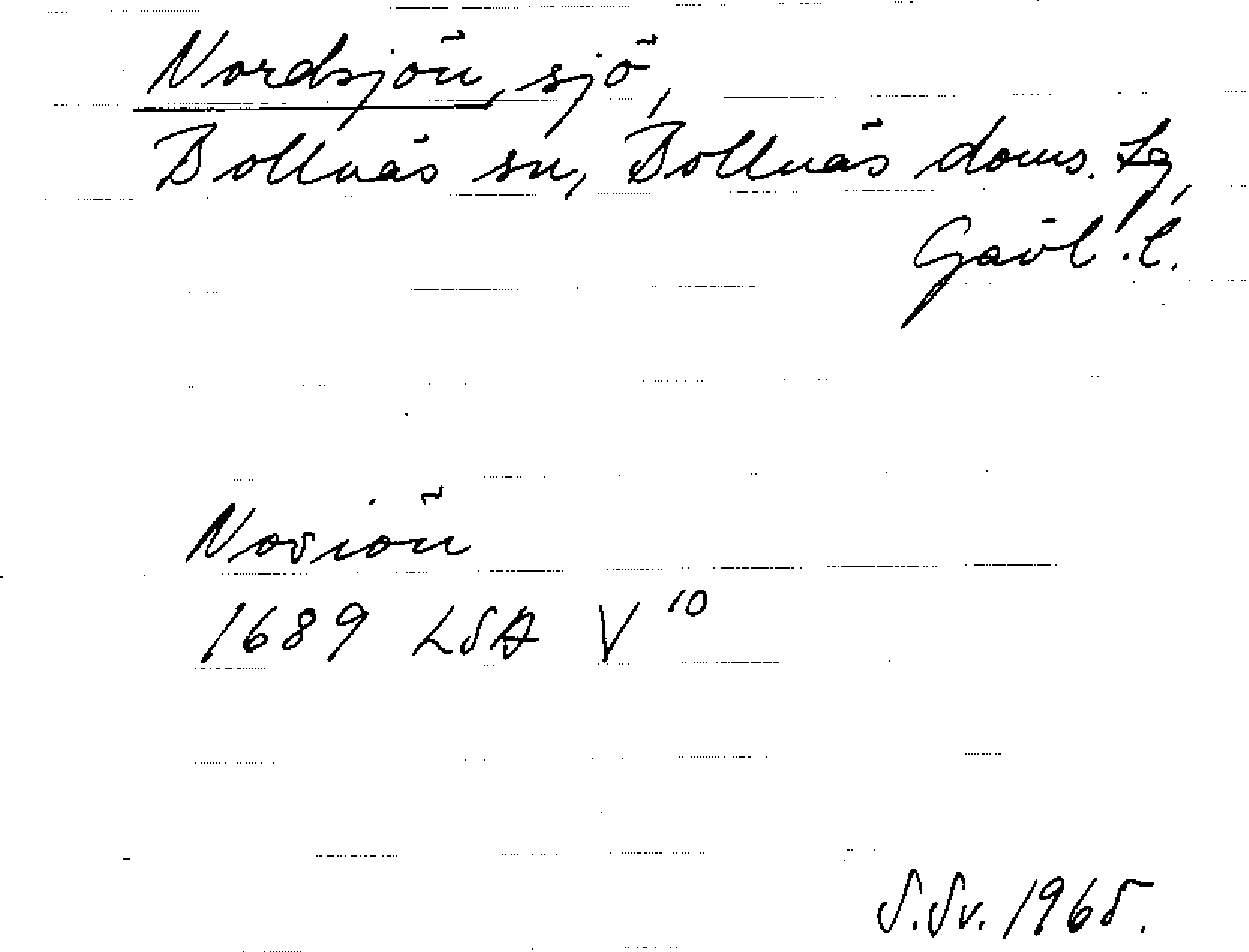 Nordsjön, sjö,
Bollnäs sn, Bollnäs doms. tg,
Gävl. l.
Nosiön
1689 LSA V 10
S.Sv. 1965.